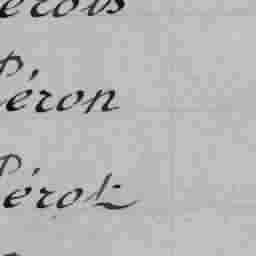 érois
Péron
Pérot